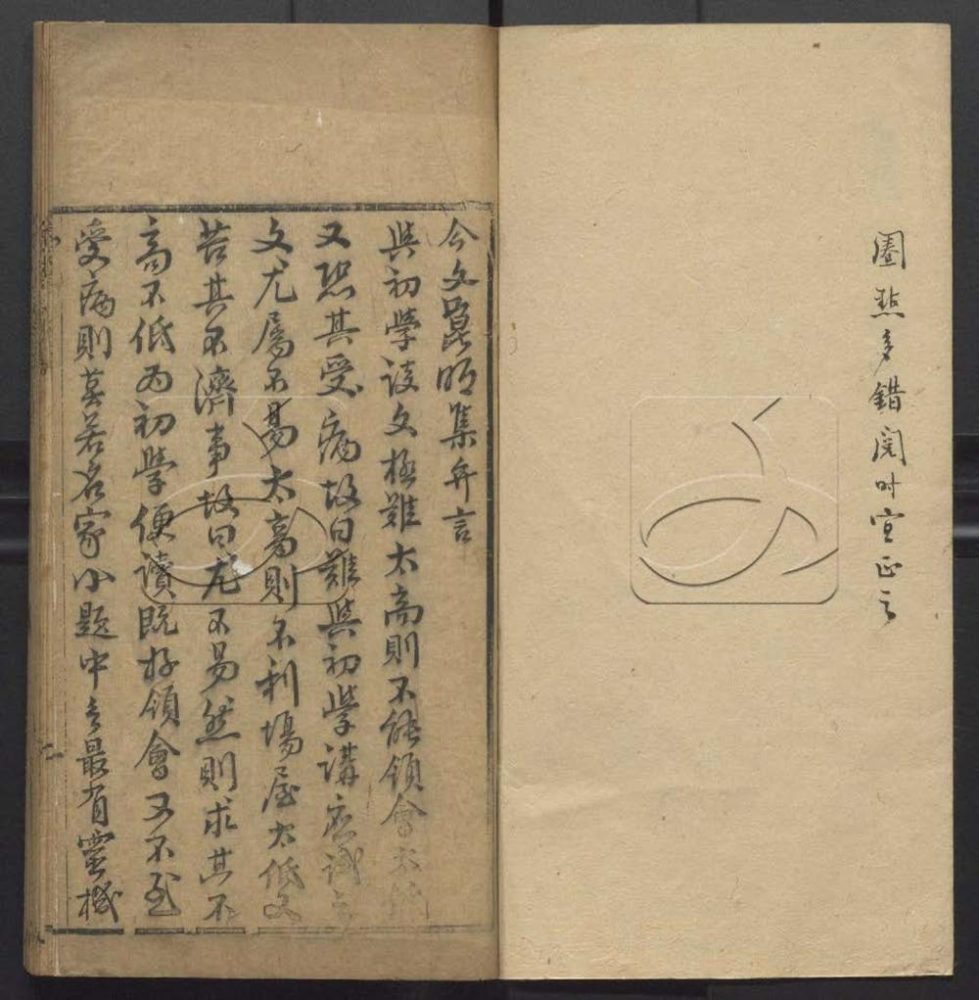 圏點多錯閱时宜正之
今文昆明集弁言
與初學談文極難太高則不能領會太低
又恐其受病故曰難與初學講應試之
文尤屬不易太高則不利場屋太低又
苦其不濟事故曰尤不易然則求其不
高不低而初學便讀既好領會又不至
受病則莫若名家小題中之最有靈機